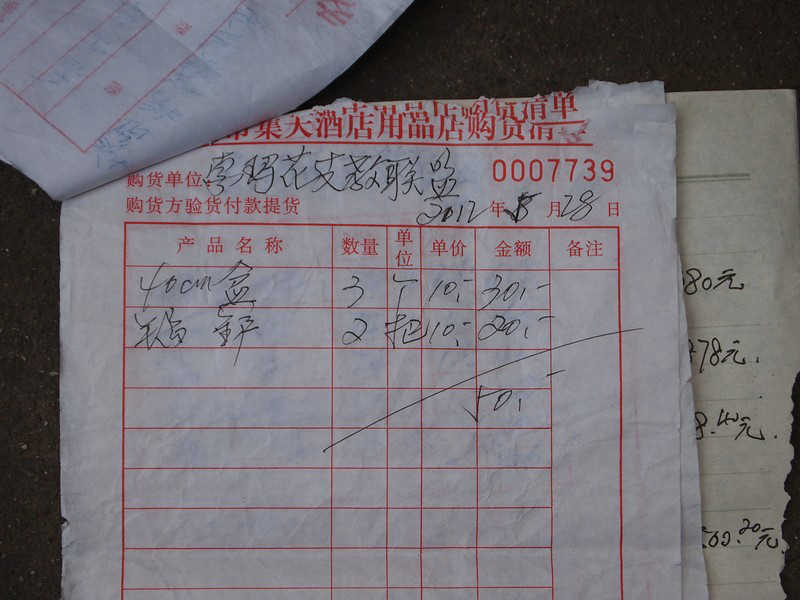 集天酒店用品店购货清
购货单位 支教联盟 0007739
购货方验货付款提货 2012 年 8 月 28 日
产品名称 数量 单位 单价 金额 备注
40cm盒 3 个 10.- 30.-
锅铲 2 把 10.- 20.-
50.-
80元
78元.
元.
元.